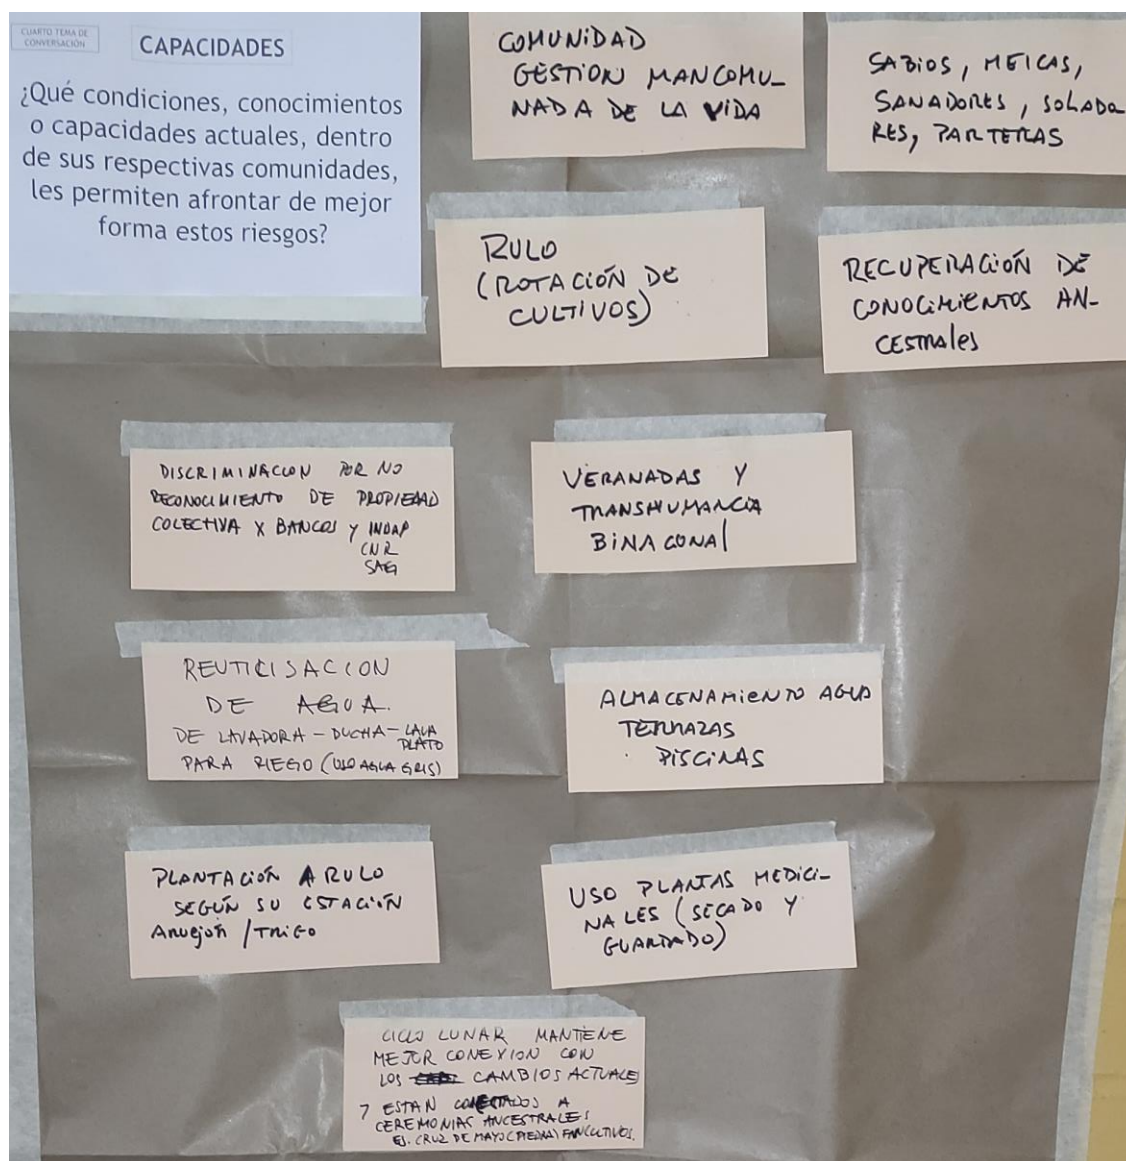 CUARTO TEMA DE
CONVERSACIÓN
CAPACIDADES
¿Qué condiciones, conocimientos
o capacidades actuales, dentro
de sus respectivas comunidades,
les permiten afrontar de mejor
forma estos riesgos?
COMUNIDAD
GESTION MANCOMU-
NADA DE LA VIDA
SABIOS, MEICAS,
SANADORES, SOBADO
RES, PARTERAS
RULO
(ROTACIÓN DE
CULTIVOS)
RECUPERACIÓN DE
CONOCIMIENTOS AN-
CESTRALES
DISCRIMINACION POR NO
RECONOCIMIENTO DE PROPIEDAD
COLECTIVA X BANCOS Y INDAP
CNR
SAG
VERANADAS Y
TRANSHUMANCIA
BINACONAL
REUTILISACION
DE AGUA.
DE LAVADORA - DUCHA - LAVA
PLATO
PARA RIEGO (USO AGUA GRIS)
ALMACENAMIENTO AGUA
TERRAZAS
PISCINAS
PLANTACIÓN A RULO
SEGÚN SU ESTACIÓN
ARVEJON / TRIGO
USO PLANTAS MEDICI-
NALES (SECADO Y
GUARDADO)
CICLO LUNAR MANTIENE
MEJOR CONEXION CON
LOS CAMBIOS ACTUALE
7 ESTAN CONECTADOS A
CEREMONIAS ANCESTRALES
EJ. CRUZ DE MAYO (PIEDRA)